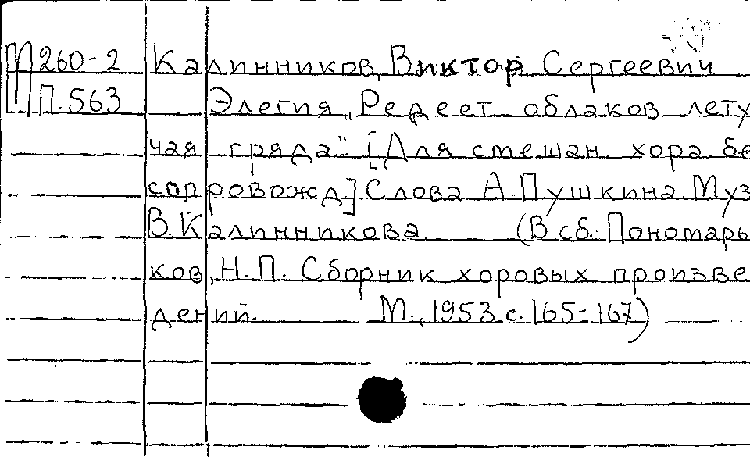 Ц 260-2 Калинников, Виктор Сергеевич
П.563 Элегия „Редеет облаков лету
чая гряда" [Для смешан. хора бе
сопровожд.] Слова А.Пушкина. Муз
В.Калинникова (В сб.: Пономарь
ков, Н.П. Сборник хоровых произве
дений. М., 1953. с. 165-167)